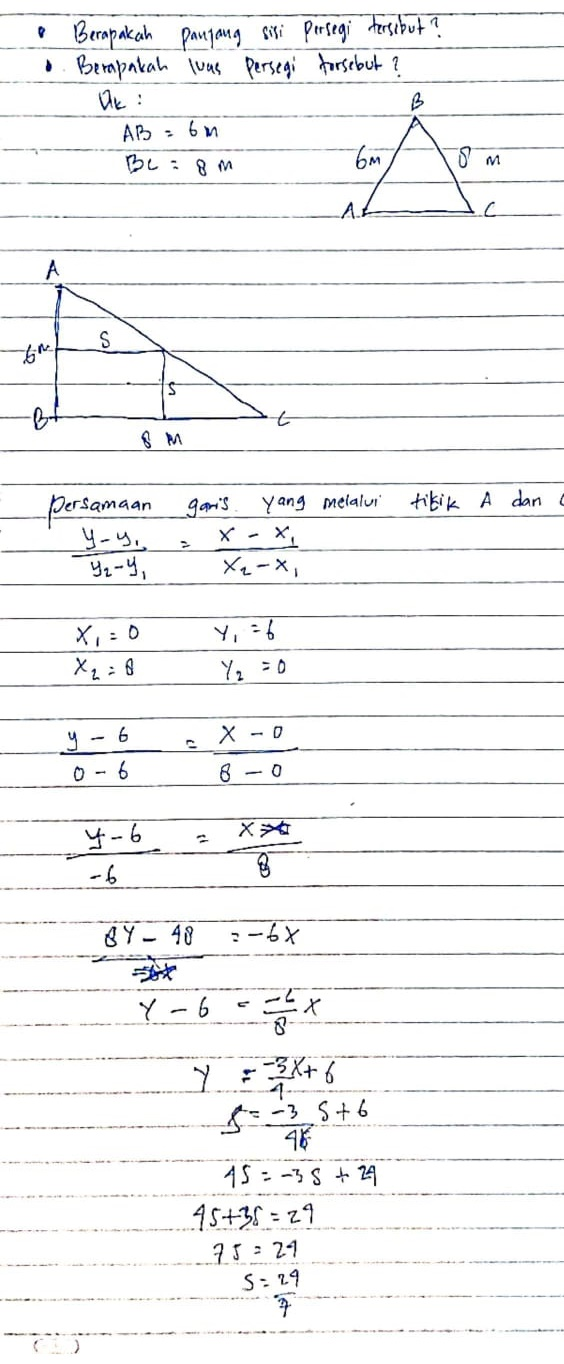 • Berapakah panjang sisi persegi tersebut?
• Berapakah luas persegi tersebut?
Dik :
AB = 6 m
BC = 8 m
B
6m
8 m
A
C
A
6m
S
S
B
C
8 m
Persamaan garis yang melalui titik A dan C
y-y₁/y₂-y₁ = x - x₁/x₂-x₁
x₁ = 0 y₁ = 6
x₂ = 8 y₂ = 0
y - 6/0 - 6 = x - 0/8 - 0
y - 6/-6 = x/8
8y - 48 = -6x
y - 6 = -6/8 x
y = -3/4 x + 6
S = -3/4 S + 6
4S = -3S + 24
4S+3S = 24
7S = 24
S = 24/7